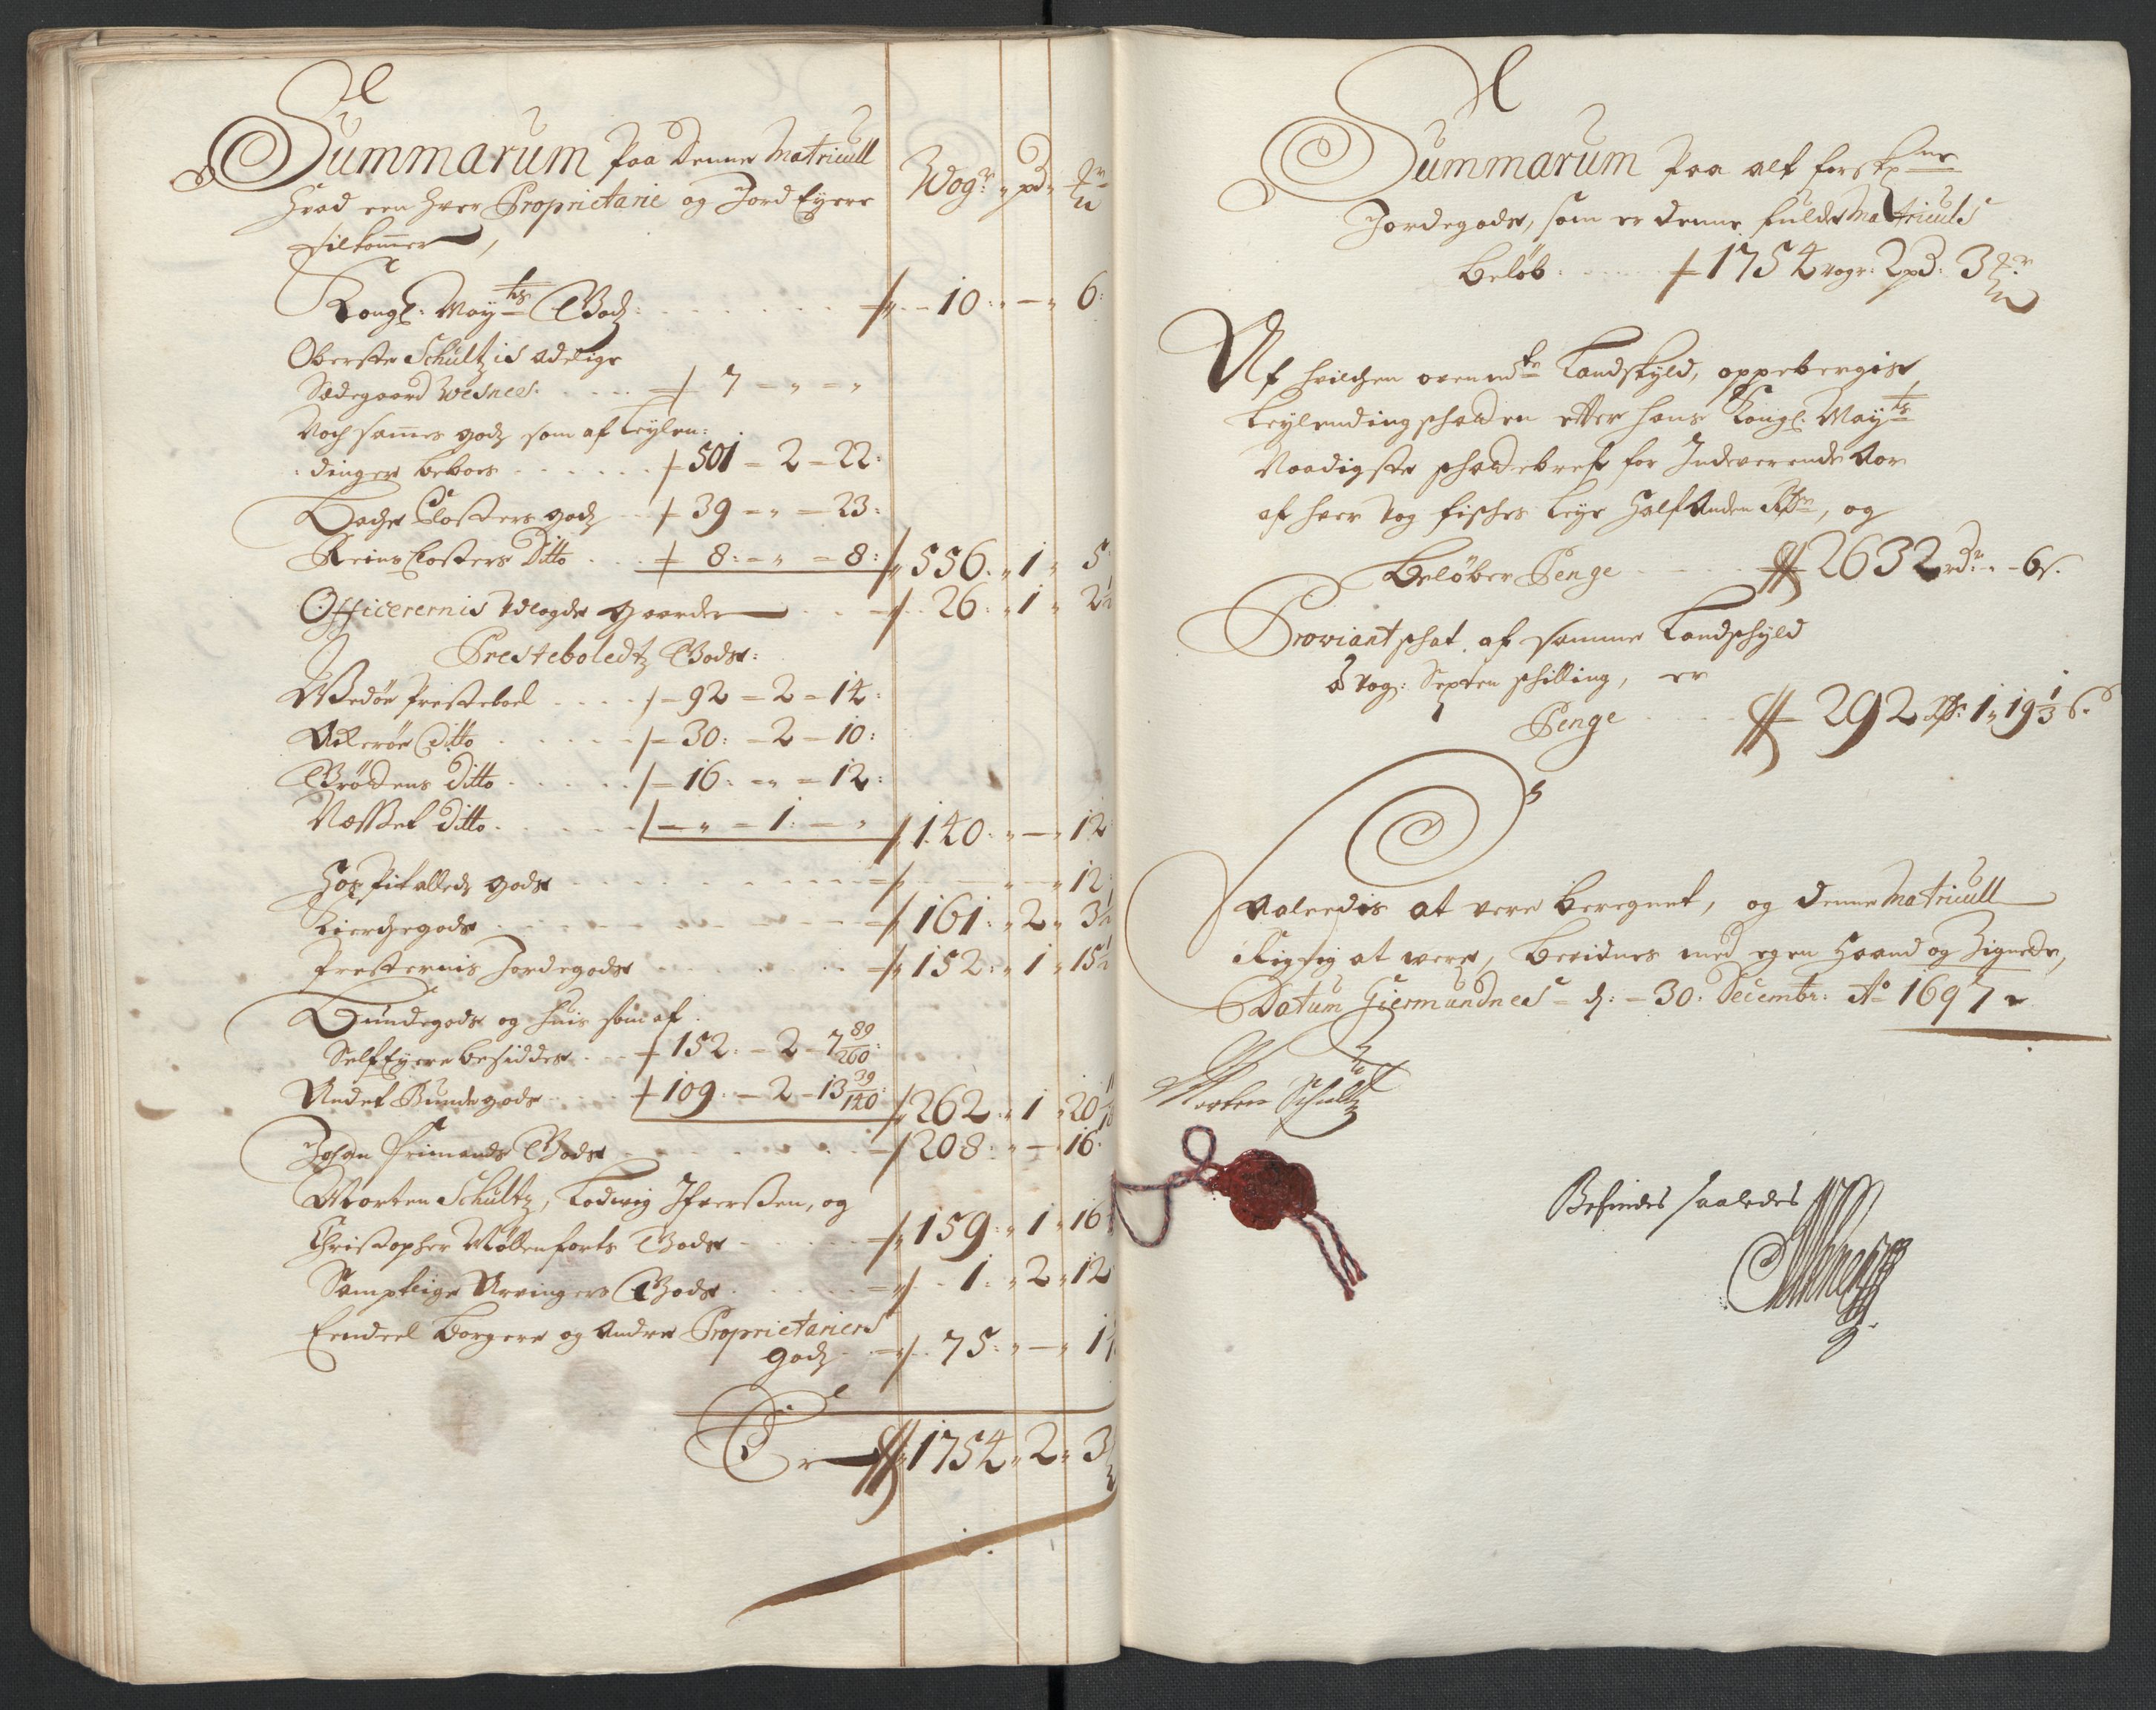 Summarum Paa Denne Matricull
Hvad een hver Proprietarie og Jord Eyere
tilkommer,
Wogr pd
Kongl: May:ts Godz: 10: — 6:
Oberste Schultzis Adelige
Sædegaard Wesnes. 7 - " = "
Noch sammes godz som af Leylen:
:dinger beboes 501 = 2 = 22:
Bache Closters godz 39 = " = 23:
Reins Closters Ditto 8: = " = 8: 556. 1 5
Officerernis Udlagde Gaarder 26: 1 2½
Presteboeledtz Godz:
Wedøe Presteboel 92 = 2 = 14:
Ackerøe Ditto 30: = 2 = 10:
Grødens Ditto 16: = " = 12:
Næsset Ditto " = 1: = " 140: — 12
Hospitalledz godz — — 12:
Kierchegodz 161: 2 3½
Presternis Jordegodz 152: 1 15½
Bundegodz og huis som af
Selfeyere besiddes 152: - 2 - 7 89/260:
Andet Bundegodz 109. - 2 - 13 39/140: 262: 1 20
Johan Frimands Godz 208: — 16:
Morten Schultz, Lodwig Ifversen, og
Christopher Møllenforts Godz 159: 1 16
Samptlige Arvingers Godz 1: 2 12
Eendeel Borgere og Andre Proprietariers
godz 75: — 1
Er 1754 2 3
Summarum Paa alt forskr:ne
Jordegodz, som er denne fulde Matriculs
Beløb: 1754 wogr: 2 pd: 3
Af hvilchen ovenmelte Landskyld, oppebergis
Leylendingschatten efter hans Kongl: May:ts
Naadigste schattebref for Indeverende Aar
af hver Vog fisches Leye Halfanden Rdr, og
Beløber Penge 2632 rdr - 6 s.
Proviantschat af samme Landschyld
à Vog: Sexten schilling, er
Penge 292 Rdr: 1 " 19 1/3 s.
Saaledis at vere beregnet, og denne Matricull
Rigtig at were, bevidnes med egen Haand og Zignete,
Datum Giermundnes d: 30: Decembr: Ao 1697
Morten Schultz
Befindes saaledes